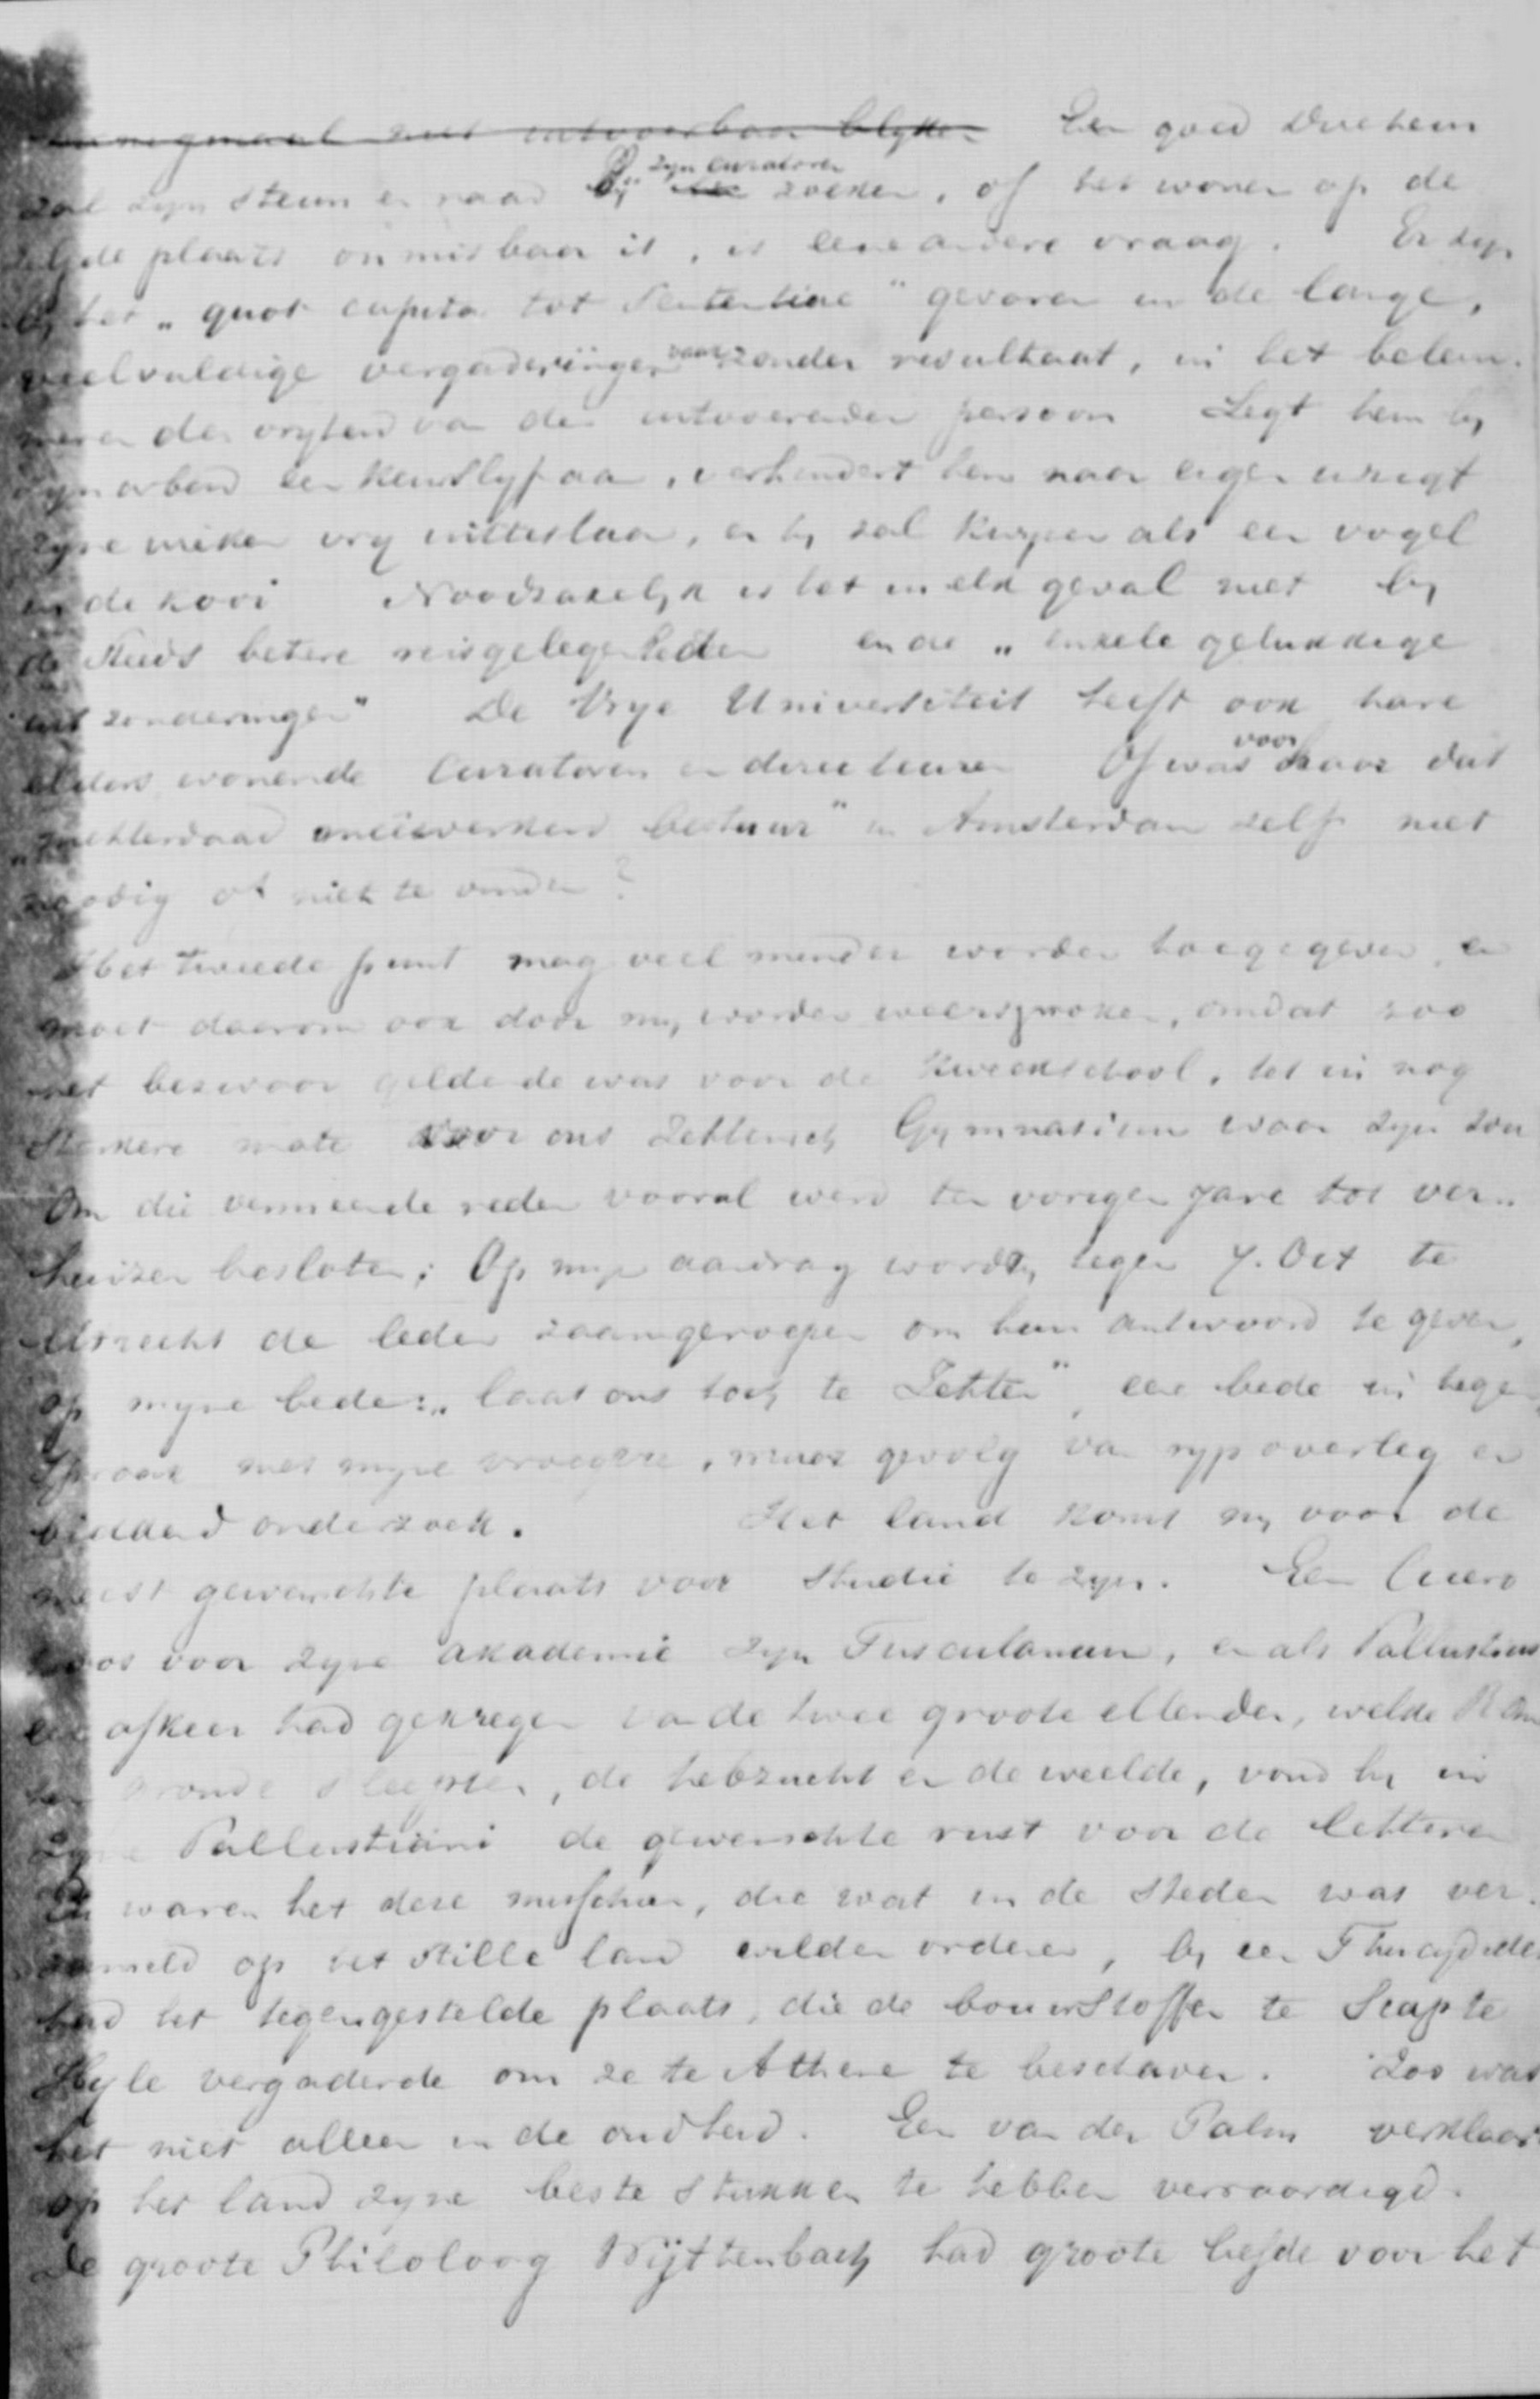 Een goed Docteur
zal zyn steun en raad by zyn curatoren zoeken, of het wonen op de
zelfde plaats onmisbaar is, is eene andere vraag. Er zyn
by het „quot capita tot sententiae" gevaren in de lange,
veelvuldige vergaderingen vaak zonder resultaat, in het belem-
meren der vryheid van den uitvoerenden persoon Legt hem by
zyn arbeid een keurslyf aan, verhindert hem naar eigen inzigt
zyne wieken vry uitteslaan, en hy zal kwynen als een vogel
in de kooi Noodzakelyk is het in elk geval niet by
de steeds betere reisgelegenheden en de „enkele gelukkige
uitzonderingen" De Vrye Universiteit heeft ook hare
elders wonende Curatoren en directeuren Of was voor haar dat
„metterdaad meewerkend bestuur" in Amsterdam zelf niet
noodig of niet te vinden?
Het tweede punt mag veel minder worden toegegeven, en
moet daarom ook door my worden weersproken, omdat zoo
het bezwaar geldende was voor de Kweekschool, het in nog
sterkere mate voor ons Zettensch Gymnasium waar zyn zou
Om die vermeende reden vooral werd ten vorigen jare tot ver-
huizen besloten; Op myn aanvraag worden tegen 7. Oct te
Utrecht de leden zaamgeroepen om hun antwoord te geven,
op myne bede: „laat ons toch te Zetten", eene bede in tegen-
spraak met myne vroegere, maar gevolg van ryp overleg en
biddend onderzoek. Het land komt my voor de
meest gewenschte plaats voor studie te zyn. Een Cicero
koos voor zyne akademie zyn Tusculanum, en als Sallustius
een afkeer had gekregen van de twee groote ellenden, welke Rome
ten gronde sleepten, de hebzucht en de weelde, vond hy in
zyne Sallustiani de gewenschte rust voor de letteren
En waren het deze misschien, die wat in de steden was ver-
zameld op het stille land wilden ordenen, by een Thucydides
had het tegengestelde plaats, die de bouwstoffen te Scapte
Hyle vergaderde om ze te Athene te beschaven. Zoo was
het niet alleen in de oudheid. Een van der Palm verklaar-
op het land zyne beste stukken te hebben vervaardigd.
De groote Philoloog Wÿttenbach had groote liefde voor het